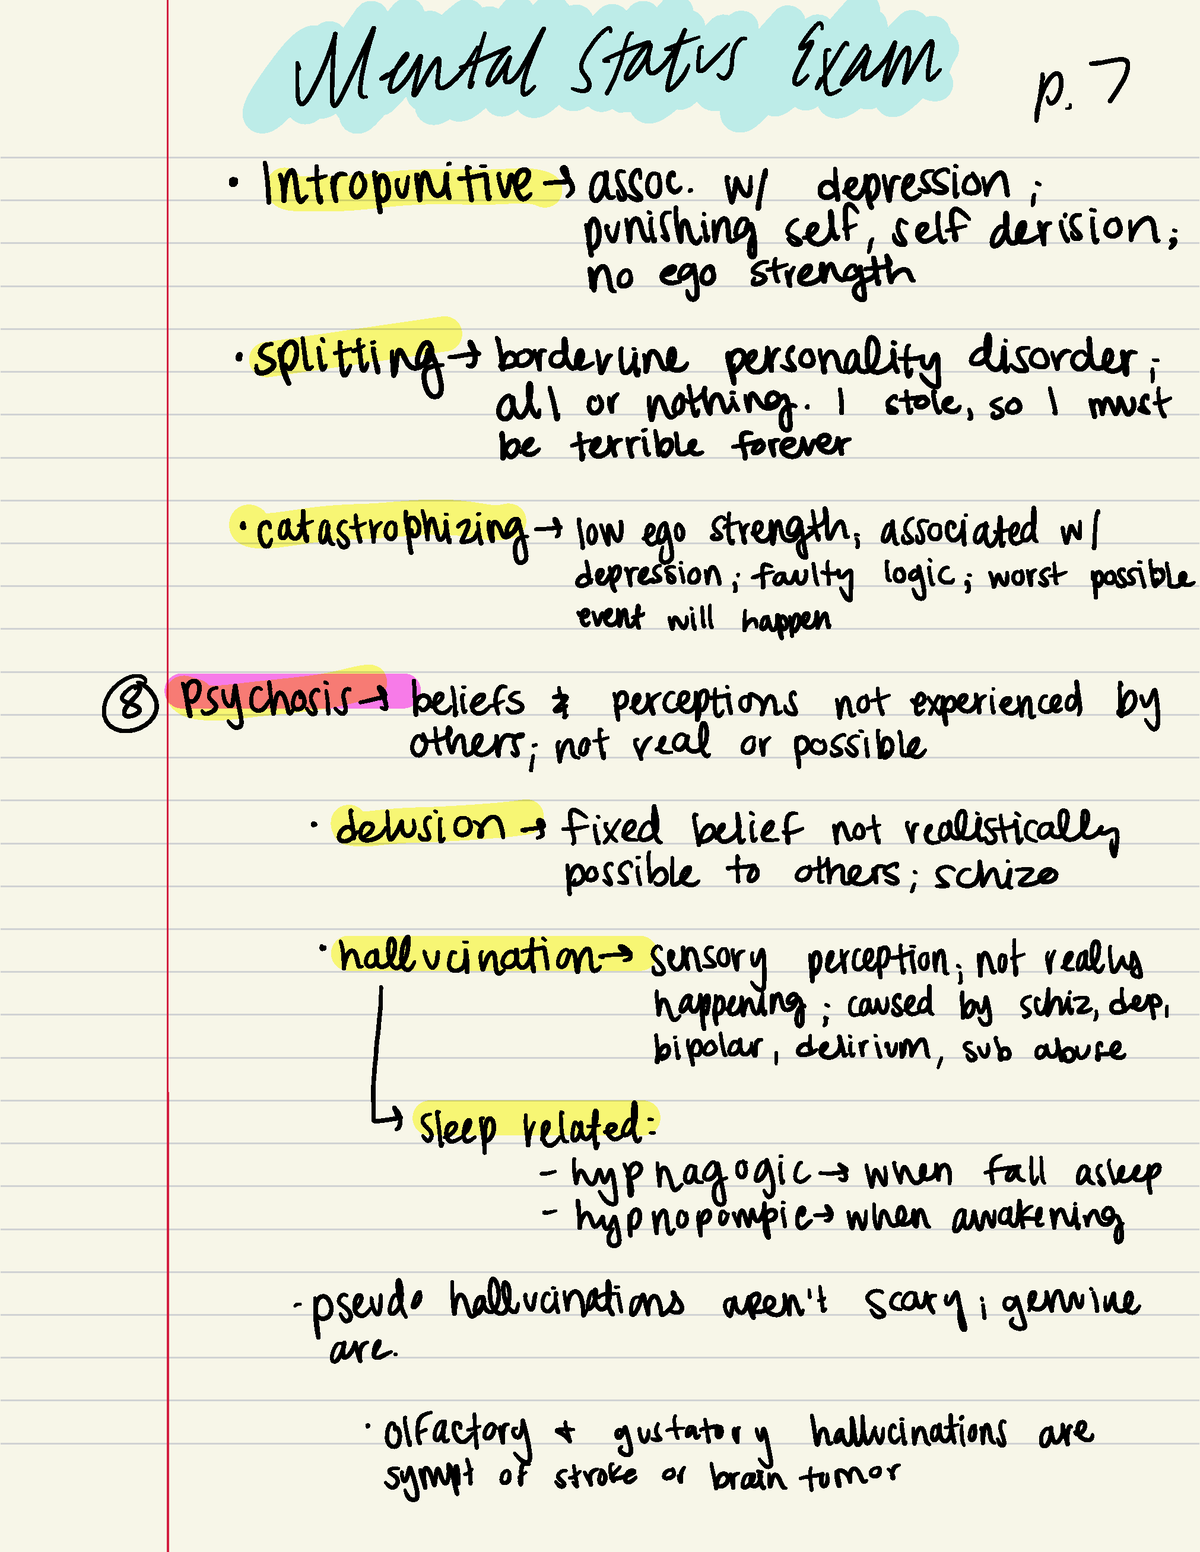 Mental Status Exam
p. 7
• Intropunitive → assoc. w/ depression;
punishing self, self derision;
no ego strength
• splitting → borderline personality disorder;
all or nothing. I stole, so I must
be terrible forever
• catastrophizing → low ego strength; associated w/
depression; faulty logic; worst possible
event will happen
⑧ Psychosis → beliefs & perceptions not experienced by
others; not real or possible
• delusion → fixed belief not realistically
possible to others; schizo
• hallucination → sensory perception; not really
happening; caused by schiz, dep,
bipolar, delirium, sub abuse
↳ sleep related:
- hypnagogic → when fall asleep
- hypnopompic → when awakening
- pseudo hallucinations aren't scary; genuine
are.
• olfactory + gustatory hallucinations are
sympt of stroke or brain tumor